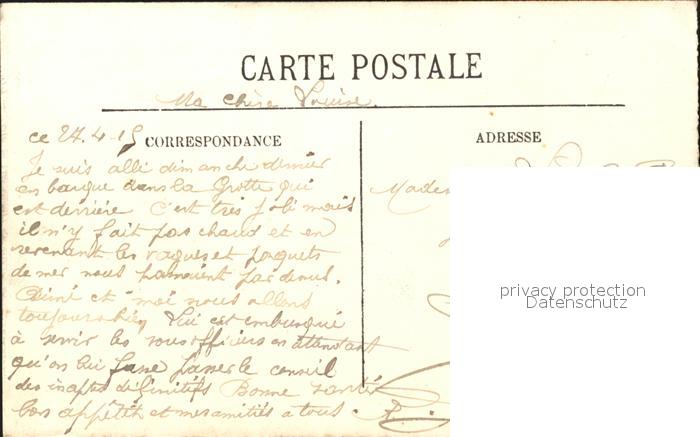 CARTE POSTALE
Ma chère Louise.
ce 27.4.15 CORRESPONDANCE
ADRESSE
Je suis allé dimanche dernier
en barque dans la Grotte qui
est derrière C'est très joli mais
il n'y fait pas chaud et en
revenant les vagues et paquets
de mer nous passaient par dessus.
Aimé et moi nous allons
toujours bien Lui est embusqué
à servir les sous officiers en attendant
qu'on lui fasse passer le conseil
des inaptes définitifs Bonne santé
bon appétit et mes amitiés à tous.
privacy protection
Datenschutz